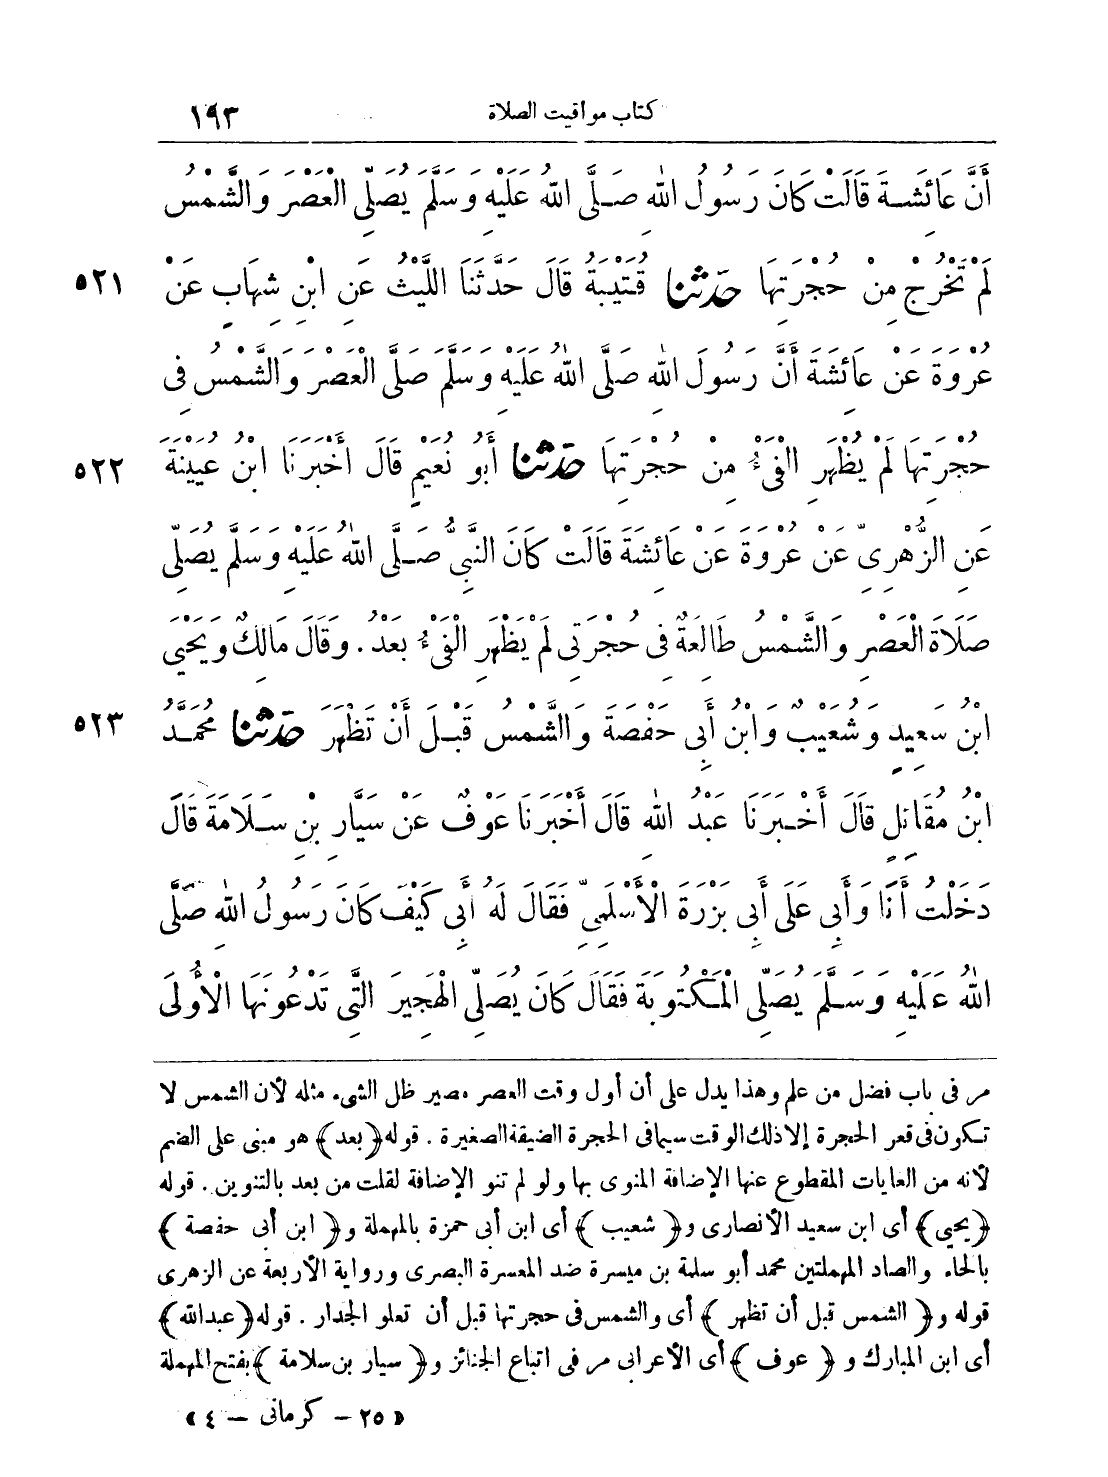 كتاب مواقيت الصلاة ١٩٣
أَنَّ عَائِشَةَ قَالَتْ كَانَ رَسُولُ اللهِ صَلَّى اللهُ عَلَيْهِ وَسَلَّمَ يُصَلِّي الْعَصْرَ وَالشَّمْسُ
لَمْ تَخْرُجْ مِنْ حُجْرَتِهَا حَدَّثَنَا قُتَيْبَةُ قَالَ حَدَّثَنَا اللَّيْثُ عَنِ ابْنِ شِهَابٍ عَنْ ٥٢١
عُرْوَةَ عَنْ عَائِشَةَ أَنَّ رَسُولَ اللهِ صَلَّى اللهُ عَلَيْهِ وَسَلَّمَ صَلَّى الْعَصْرَ وَالشَّمْسُ فِى
حُجْرَتِهَا لَمْ يَظْهَرِ الْفَىْءُ مِنْ حُجْرَتِهَا حَدَّثَنَا أَبُو نُعَيْمٍ قَالَ أَخْبَرَنَا ابْنُ عُيَيْنَةَ ٥٢٢
عَنِ الزُّهْرِىِّ عَنْ عُرْوَةَ عَنْ عَائِشَةَ قَالَتْ كَانَ النَّبِىُّ صَلَّى اللهُ عَلَيْهِ وَسَلَّمَ يُصَلِّى
صَلَاةَ الْعَصْرِ وَالشَّمْسُ طَالِعَةٌ فِى حُجْرَتِى لَمْ يَظْهَرِ الْفَىْءُ بَعْدُ . وَقَالَ مَالِكٌ وَيَحْيَى
ابْنُ سَعِيدٍ وَشُعَيْبٌ وَابْنُ أَبِى حَفْصَةَ وَالشَّمْسُ قَبْلَ أَنْ تَظْهَرَ حَدَّثَنَا مُحَمَّدُ ٥٢٣
ابْنُ مُقَاتِلٍ قَالَ أَخْبَرَنَا عَبْدُ اللهِ قَالَ أَخْبَرَنَا عَوْفٌ عَنْ سَيَّارِ بْنِ سَلَامَةَ قَالَ
دَخَلْتُ أَنَا وَأَبِى عَلَى أَبِى بَرْزَةَ الْأَسْلَمِىِّ فَقَالَ لَهُ أَبِى كَيْفَ كَانَ رَسُولُ اللهِ صَلَّى
اللهُ عَلَيْهِ وَسَلَّمَ يُصَلِّى الْمَكْتُوبَةَ فَقَالَ كَانَ يُصَلِّى الْهَجِيرَ الَّتِى تَدْعُونَهَا الْأُولَى
مر فى باب فضل من علم وهذا يدل على أن أول وقت العصر مصير ظل الشىء مثله لأن الشمس لا
تكون فى قعر الحجرة إلا ذلك الوقت سيما فى الحجرة الضيقة الصغيرة . قوله ﴿بعد﴾ هو مبنى على الضم
لأنه من الغايات المقطوع عنها الإضافة المنوى بها ولو لم تنو الإضافة لقلت من بعد بالتنوين . قوله
﴿يحيى﴾ أى ابن سعيد الأنصارى و﴿شعيب﴾ أى ابن أبى حمزة بالمهملة و﴿ابن أبى حفصة﴾
بالحاء والصاد المهملتين محمد أبو سلمة بن ميسرة ضد المعسرة البصرى ورواية الأربعة عن الزهرى
قوله و﴿الشمس قبل أن تظهر﴾ أى والشمس فى حجرتها قبل أن تعلو الجدار . قوله ﴿عبدالله﴾
أى ابن المبارك و﴿عوف﴾ أى الأعرابى مر فى اتباع الجنائز و﴿سيار بن سلامة﴾ بفتح المهملة
« ٢٥ - كرمانى - ٤ »